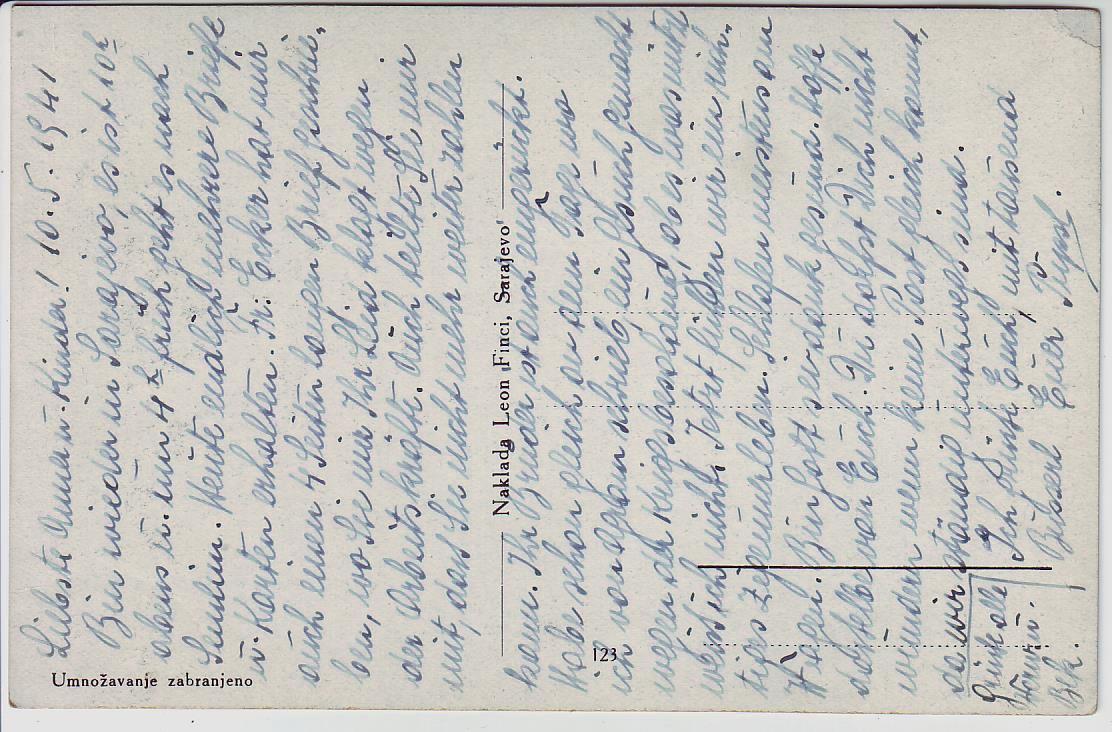 Liebste Anna u. Kinder! 10.5.1941
Bin wieder in Sarajevo, es ist 10h
abens u. um 4h früh geht es nach
Semlin. Heute endlich mehrere Briefe
u. Karten erhalten. Fr. Ecker hat mir
auch einen 4 Seiten langen Brief geschrie-
ben, wo Sie mir Ihr Leid klagt wegen
der Arbeitskräfte. Auch teilte Sie mir
mit, dass Sie nicht mehr weiter zahlen
kann. Ihr Bruder ist auch eingerückt.
Habe schon gleich an dem Tage wo
ich von Agram schrieb, ein Gesuch gemacht
wegen der Kriegsentschäd., ob es was nützt
weiss ich nicht. Jetzt führen wir ein rich-
tiges Zigeunerleben. Schlafen meistens am
Wagen. Bin Gott sei dank gesund. Hoffe
dasselbe von Euch. Du darfst Dich nicht
wundern wenn keine Post gleich kommt,
da wir ständig unterwegs sind.
Ich grüsse Euch mit tausend
Busserl Euer
Grüsse alle
Bek.
Naklada Leon Finci, Sarajevo
Umnožavanje zabranjeno
123